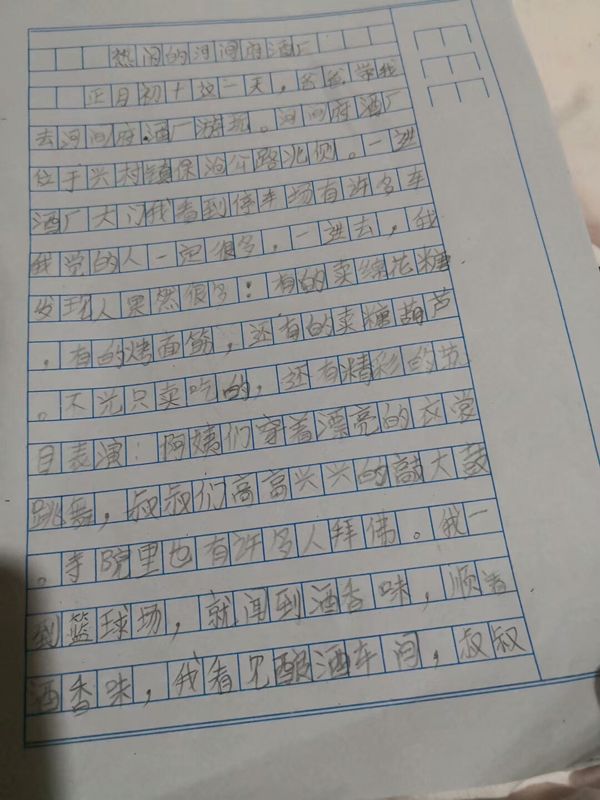 热闹的河间府酒厂
正月初十这一天，爸爸带我
去河间府酒厂游玩。河间府酒厂
位于兴村镇保沧公路北侧。一进
酒厂大门我看到停车场有许多车
我觉的人一定很多。一进去，我
发现人果然很多：有的卖绵花糖
，有的烤面筋，还有的卖糖葫芦
。不光只卖吃的，还有精彩的节
目表演：阿姨们穿着漂亮的衣裳
跳舞，叔叔们高高兴兴的敲大鼓
。寺院里也有许多人拜佛。我一
到篮球场，就闻到酒香味，顺着
酒香味，我看见酿酒车间，叔叔